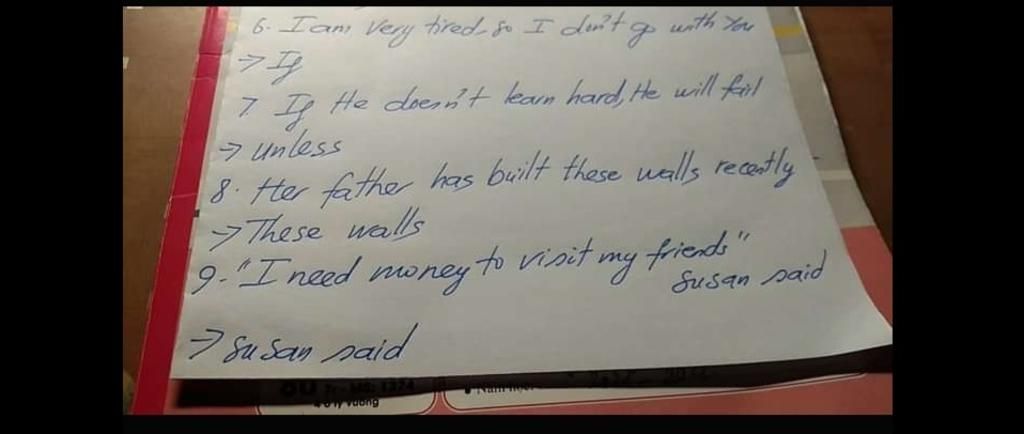 6. I am very tired, so I don't go with You
→ If
7. If He doesn't learn hard, He will fail
→ unless
8. Her father has built these walls recently
→ These walls
9. "I need money to visit my friends"
Susan said
→ Susan said
4 ô ly vuông